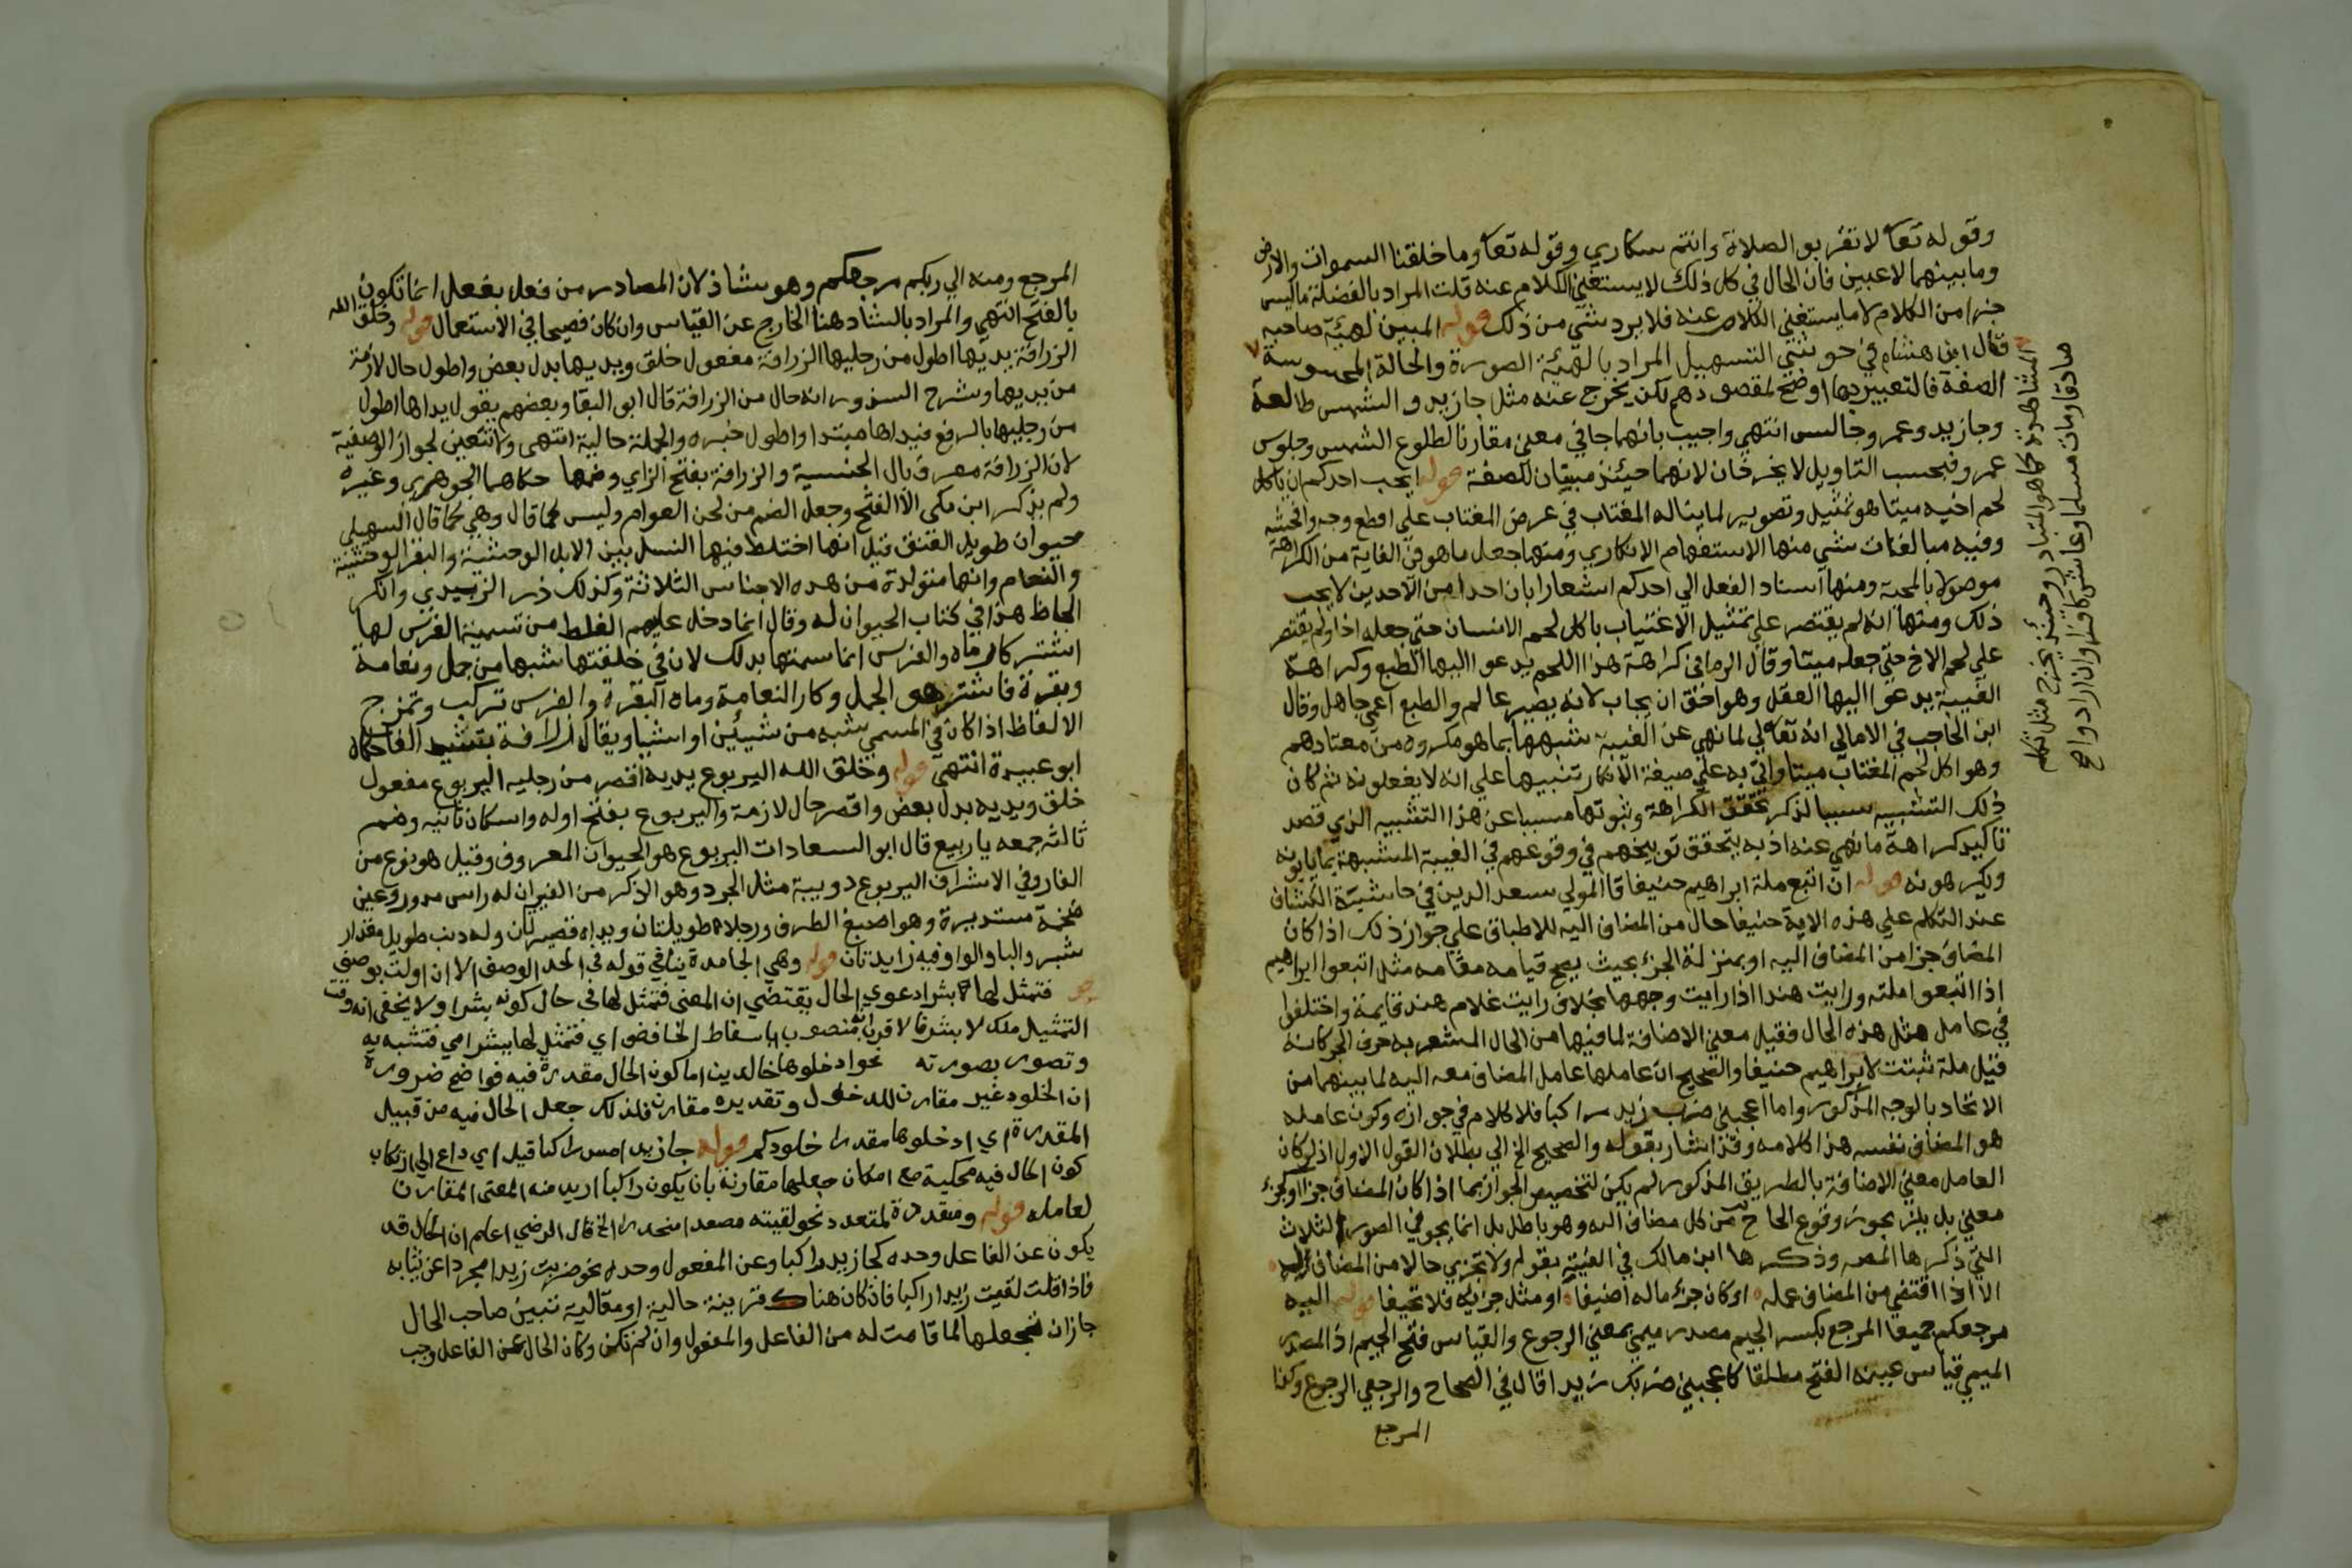 وقوله تعا لا تقربو الصلاة وانتم سكاري وقوله تعا وما خلقنا السموات والارض
وما بينهما لاعبين فان الحال في كل ذلك لا يستغني الكلام عنه قلت المراد بالفضلة ما ليس
جزا من الكلام لا ما يستغني الكلام عنه فلا يرد شي من ذلك قوله المبين لهيئة صاحبه
قال ابن هشام في حواشي التسهيل المراد بالهيئة الصورة والحالة المحسوسة
المشاهدة كما هو المتبادر وحينئذ يخرج مثل تكلم
صادقا ومات مسلما وعاش كافرا وان اراد واح
الصفة فالتعبير بها اوضح لمقصودهم لكن يخرج عنه مثل جا زيد والشمس طالعة
وجا زيد وعمرو جالس انتهي واجيب بانهما جا في معني مقارنا لطلوع الشمس وجلوس
عمرو فبحسب التاويل لا يخرجان لانهما حينئذ مبينان للصفة قوله ايحب احدكم ان ياكل
لحم اخيه ميتا هو تمثيل وتصوير لما يناله المغتاب في عرض المغتاب علي افظع وجه وافحشه
وفيه مبالغات شي منها الاستفهام الانكاري ومنها جعل ما هو في الغاية من الكراهة
موصولا بالمحبة ومنها اسناد الفعل الي احدكم اشعارا بان احدا من الاحدين لا يحب
ذلك ومنها انه لم يقتصر علي تمثيل الاغتياب باكل لحم الانسان حتي جعله اخا ولم يقتصر
علي لحم الاخ حتي جعله ميتا وقال الرماني كراهة هذا اللحم يدعوا اليها الطبع وكراهة
الغيبة يدعوا اليها العقل وهو احق ان يجاب لانه بصير عالم والطبع اعمي جاهل وقال
ابن الحاجب في الامالي انه تعالي لما نهي عن الغيبة شبهها بما هو مكروه من معتادهم
وهو اكل لحم المغتاب ميتا واتي به علي صيغة الانكار تنبيها علي انه لا يفعلونه ثم كان
ذلك التشبيه سببا لذكر تحقق الكراهة وثبوتها مسببا عن هذا التشبيه الذي قصد
تاكيد كراهة ما نهي عنه اذ به يتحقق توبيخهم في وقوعهم في الغيبة المشبهة بما يابونه
ويكرهونه قوله ان اتبع ملة ابراهيم حنيفا قا المولي سعد الدين في حاشية الكشاف
عند التكلم علي هذه الاية حنيفا حال من المضاف اليه للاطباق علي جواز ذلك اذا كان
المضاف جزا من المضاف اليه او بمنزلة الجزء بحيث يصح قيامه مقامه مثل اتبعوا ابراهيم
اذا اتبعوا ملته ورايت هندا اذا رايت وجهها بخلاف رايت غلام هند قايمة واختلفوا
في عامل مثل هذه الحال فقيل معني الاضافة لما فيها من الحال المشعر به حرف الجر كانه
قيل ملة ثبتت لابراهيم حنيفا والصحيح ان عاملها عامل المضاف معه اليه لما بينهما من
الاتحاد بالوجه المذكور واما اعجبني ضرب زيد راكبا فلا كلام في جوازه وكون عامله
هو المضاف نفسه هذا كلامه وقد اشار بقوله والصحيح الخ الي بطلان القول الاول اذ لو كان
العامل معني الاضافة بالطريق المذكور لم يكن لتخصيص الجواز بما اذا كان المضاف جزا او كجزء
معني بل يلزم بجوز وقوع الحال من كل مضاف اليه وهو باطل بل انما يجوز في الصور الثلاث
التي ذكرها المصـ وذكرها ابن مالك في الفيته بقوله ولا تجزي حالا من المضاف اليه
الا اذا اقتضي من المضاف عمله او كان جزء ماله اضيفا او مثل جزئه فلا تحيفا قوله اليه
مرجعكم جميعا المرجع بكسر الجيم مصدر ميمي بمعني الرجوع والقياس فتح الجيم اذ المصدر
الميمي قياس عينه الفتح مطلقا كاعجبني ضربك زيدا قال في الصحاح والرجعي الرجوع وكذا
المرجع
المرجع ومنه الي ربكم مرجعكم وهو شاذ لان المصادر من فعل يفعل انما تكون
بالفتح انتهي والمراد بالشاد هنا الخارج عن القياس وان كان فصيحا في الاستعمال قوله وخلق الله
الزرافة يديها اطول من رجليها الزرافة مفعول خلق ويديها بدل بعض واطول حال لازمة
من يديها وشرح السذور انه حال من الزرافة قال ابو البقا وبعضهم يقول يداها اطول
من رجليها بالرفع فيداها مبتدا واطول خبره والجملة حالية انتهي ولا تتعين لجواز الوصفية
لان الزرافة معرف بال الجنسية والزرافة بفتح الزاي وضمها حكاهما الجوهري وغيره
ولم يذكر ابن مكي الا الفتح وجعل الضم من لحن العوام وليس كما قال وهي كما قال السهيلي
حيوان طويل العنق قيل انها اختلط فيها النسل بين الابل الوحشية والبقر الوحشية
والنعام وانها متولدة من هده الاجناس الثلاثة وكذلك ذر الزبيدي وانكر
الجاحظ هذا في كتاب الحيوان له وقال انما دخل عليهم الغلط من تسمية الفرس لها
اشتر كار ماه والفرس انما سمتها بدلك لان في خلقتها شبها من جمل ونعامة
وبقرة فاشتر هو الجمل وكار النعامة وماه البقرة والفرس تركب وتمزج
الالفاظ اذا كان في المسمي شبه من شيئين او اشيا ويقال زرافة بتشيد الفا حكاه
ابو عبيدة انتهي قوله وخلق الله اليربوع يديه اقصر من رجليه اليربوع مفعول
خلق ويديه بدل بعض واقصر حال لازمة واليربوع بفتح اوله واسكان ثانيه وضم
ثالثه جمعه يا ربيع قال ابو السعادات اليربوع هو الحيوان المعروف وقيل هو نوع من
الفار وفي الاشراف اليربوع دويبة مثل الجرد وهو الذكر من الفيران له راس مدور وعين
ضخمة مستديرة وهو اصبغ الطرف ورجلاه طويلتان ويداه قصيرتان وله دنب طويل مقدار
شبر والبا والواو فيه زايدتان قوله وهي الجامدة ينافي قوله في الحد الوصف الا ان اولت بوصف
فتمثل لها بشرا دعوي الحال يقتضي ان المعني فتمثل لها في حال كونه بشرا ولا يخفي انه وقت
التمثيل ملك لا بشر فالاقرب انه منصوب باسقاط الخافض اي فتمثل لها ببشر اي فتشبه به
وتصور بصورته نحو ادخلوها خالدين اما كون الحال مقدرة فيه فواضح ضرورة
ان الخلود غير مقارن للدخول وتقديره مقارن فلذلك جعل الحال فيه من قبيل
المقدرة اي ادخلوها مقدرا خلودكم قوله جا زيد امس راكبا قيل اي داع الي ارتكاب
كون الحال فيه محكية مع امكان جعلها مقارنة بان يكون راكبا اريد منه المعني المقارن
لعامله قوله ومقدرة لمتعدد نحو لقيته مصعدا منحدرا الخ قال الرضي اعلم ان الحال قد
يكون عن الفاعل وحده كجا زيد راكبا وعن المفعول وحده نحو ضربت زيدا مجردا عن ثيابه
فاذا قلت لقيت زيدا راكبا فان كان هناك قرينة حالية او مقالية تبين صاحب الحال
جاز ان تجعلها لما قامت له من الفاعل والمفعول وان لم تكن وكان الحال عن الفاعل وجب